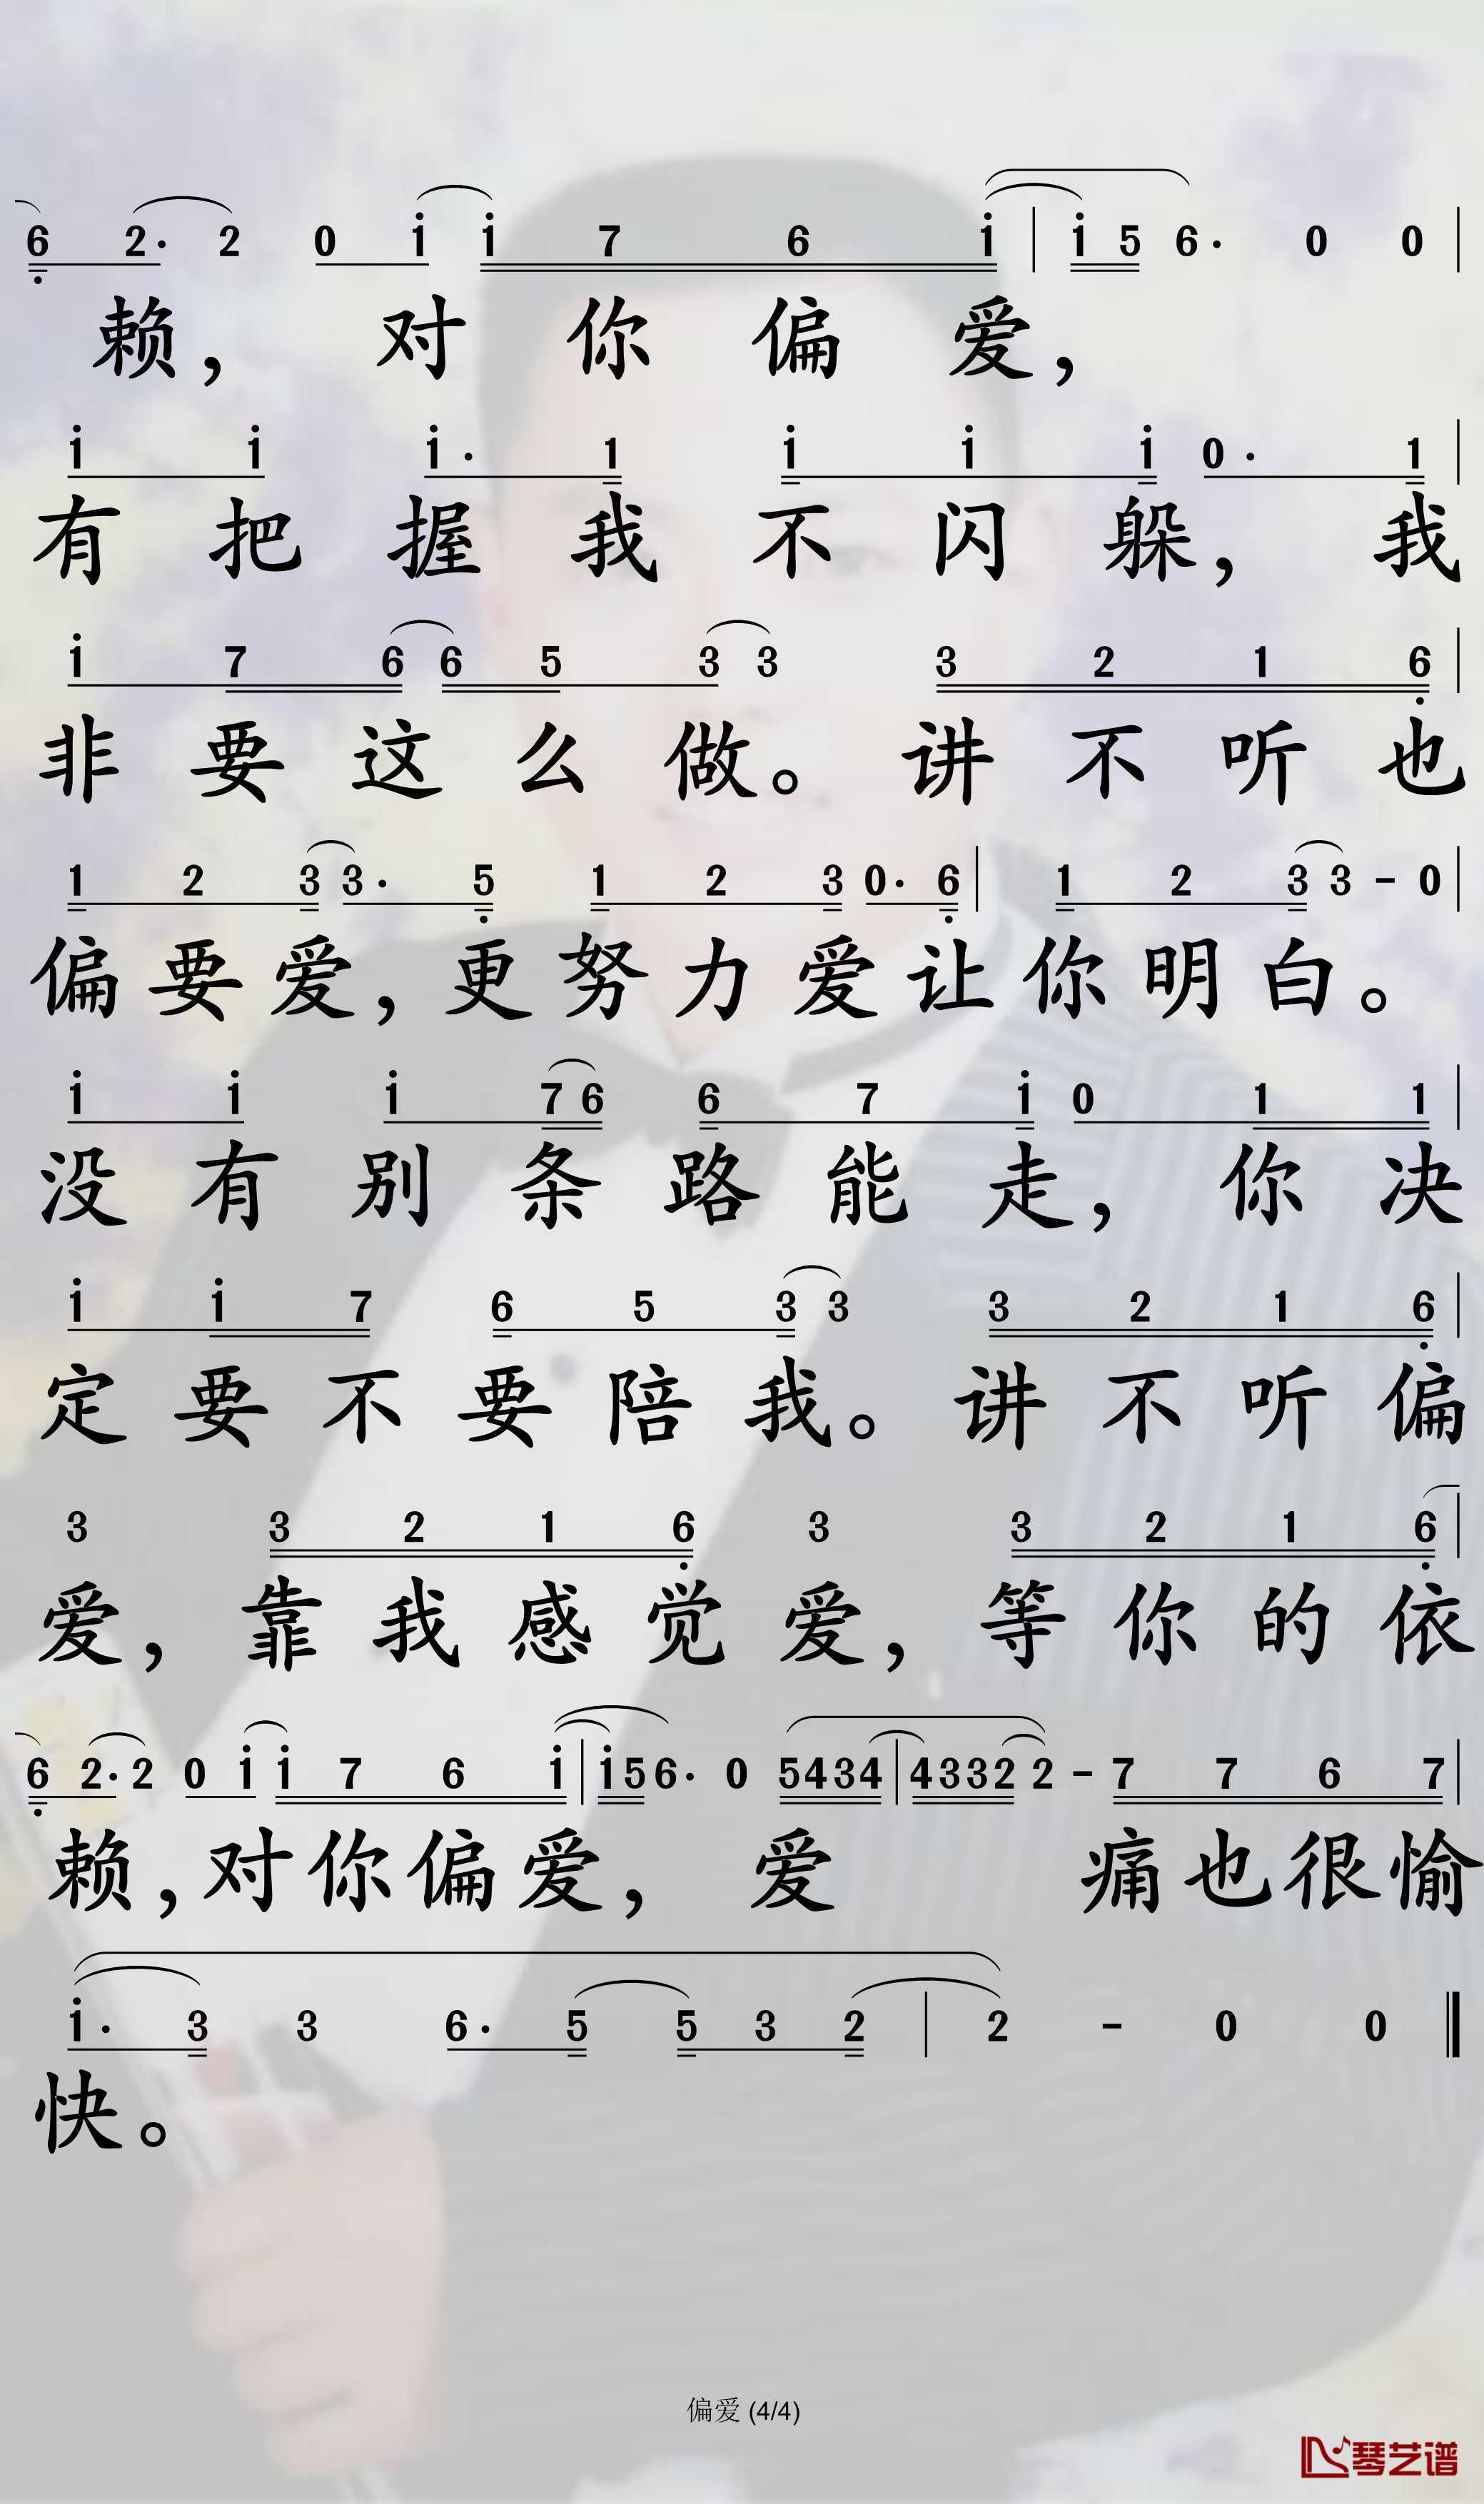 6 2· 2 0 i i 7 6 i | i 5 6· 0 0 |
赖, 对 你 偏 爱,
i i i· 1 i i i 0· 1 |
有 把 握 我 不 闪 躲, 我
i 7 6 6 5 3 3 3 2 1 6 |
非 要 这 么 做。 讲 不 听 也
1 2 3 3· 5 1 2 3 0· 6 | 1 2 3 3 - 0 |
偏 要 爱, 更 努 力 爱 让 你 明 白。
i i i 7 6 6 7 i 0 1 1 |
没 有 别 条 路 能 走, 你 决
i i 7 6 5 3 3 3 2 1 6 |
定 要 不 要 陪 我。 讲 不 听 偏
3 3 2 1 6 3 3 2 1 6 |
爱, 靠 我 感 觉 爱, 等 你 的 依
6 2· 2 0 i i 7 6 i | i 5 6· 0 5 4 3 4 | 4 3 3 2 2 - 7 7 6 7 |
赖, 对 你 偏 爱, 爱 痛 也 很 愉
i· 3 3 6· 5 5 3 2 | 2 - 0 0 ‖
快。
偏爱 (4/4)
琴艺谱